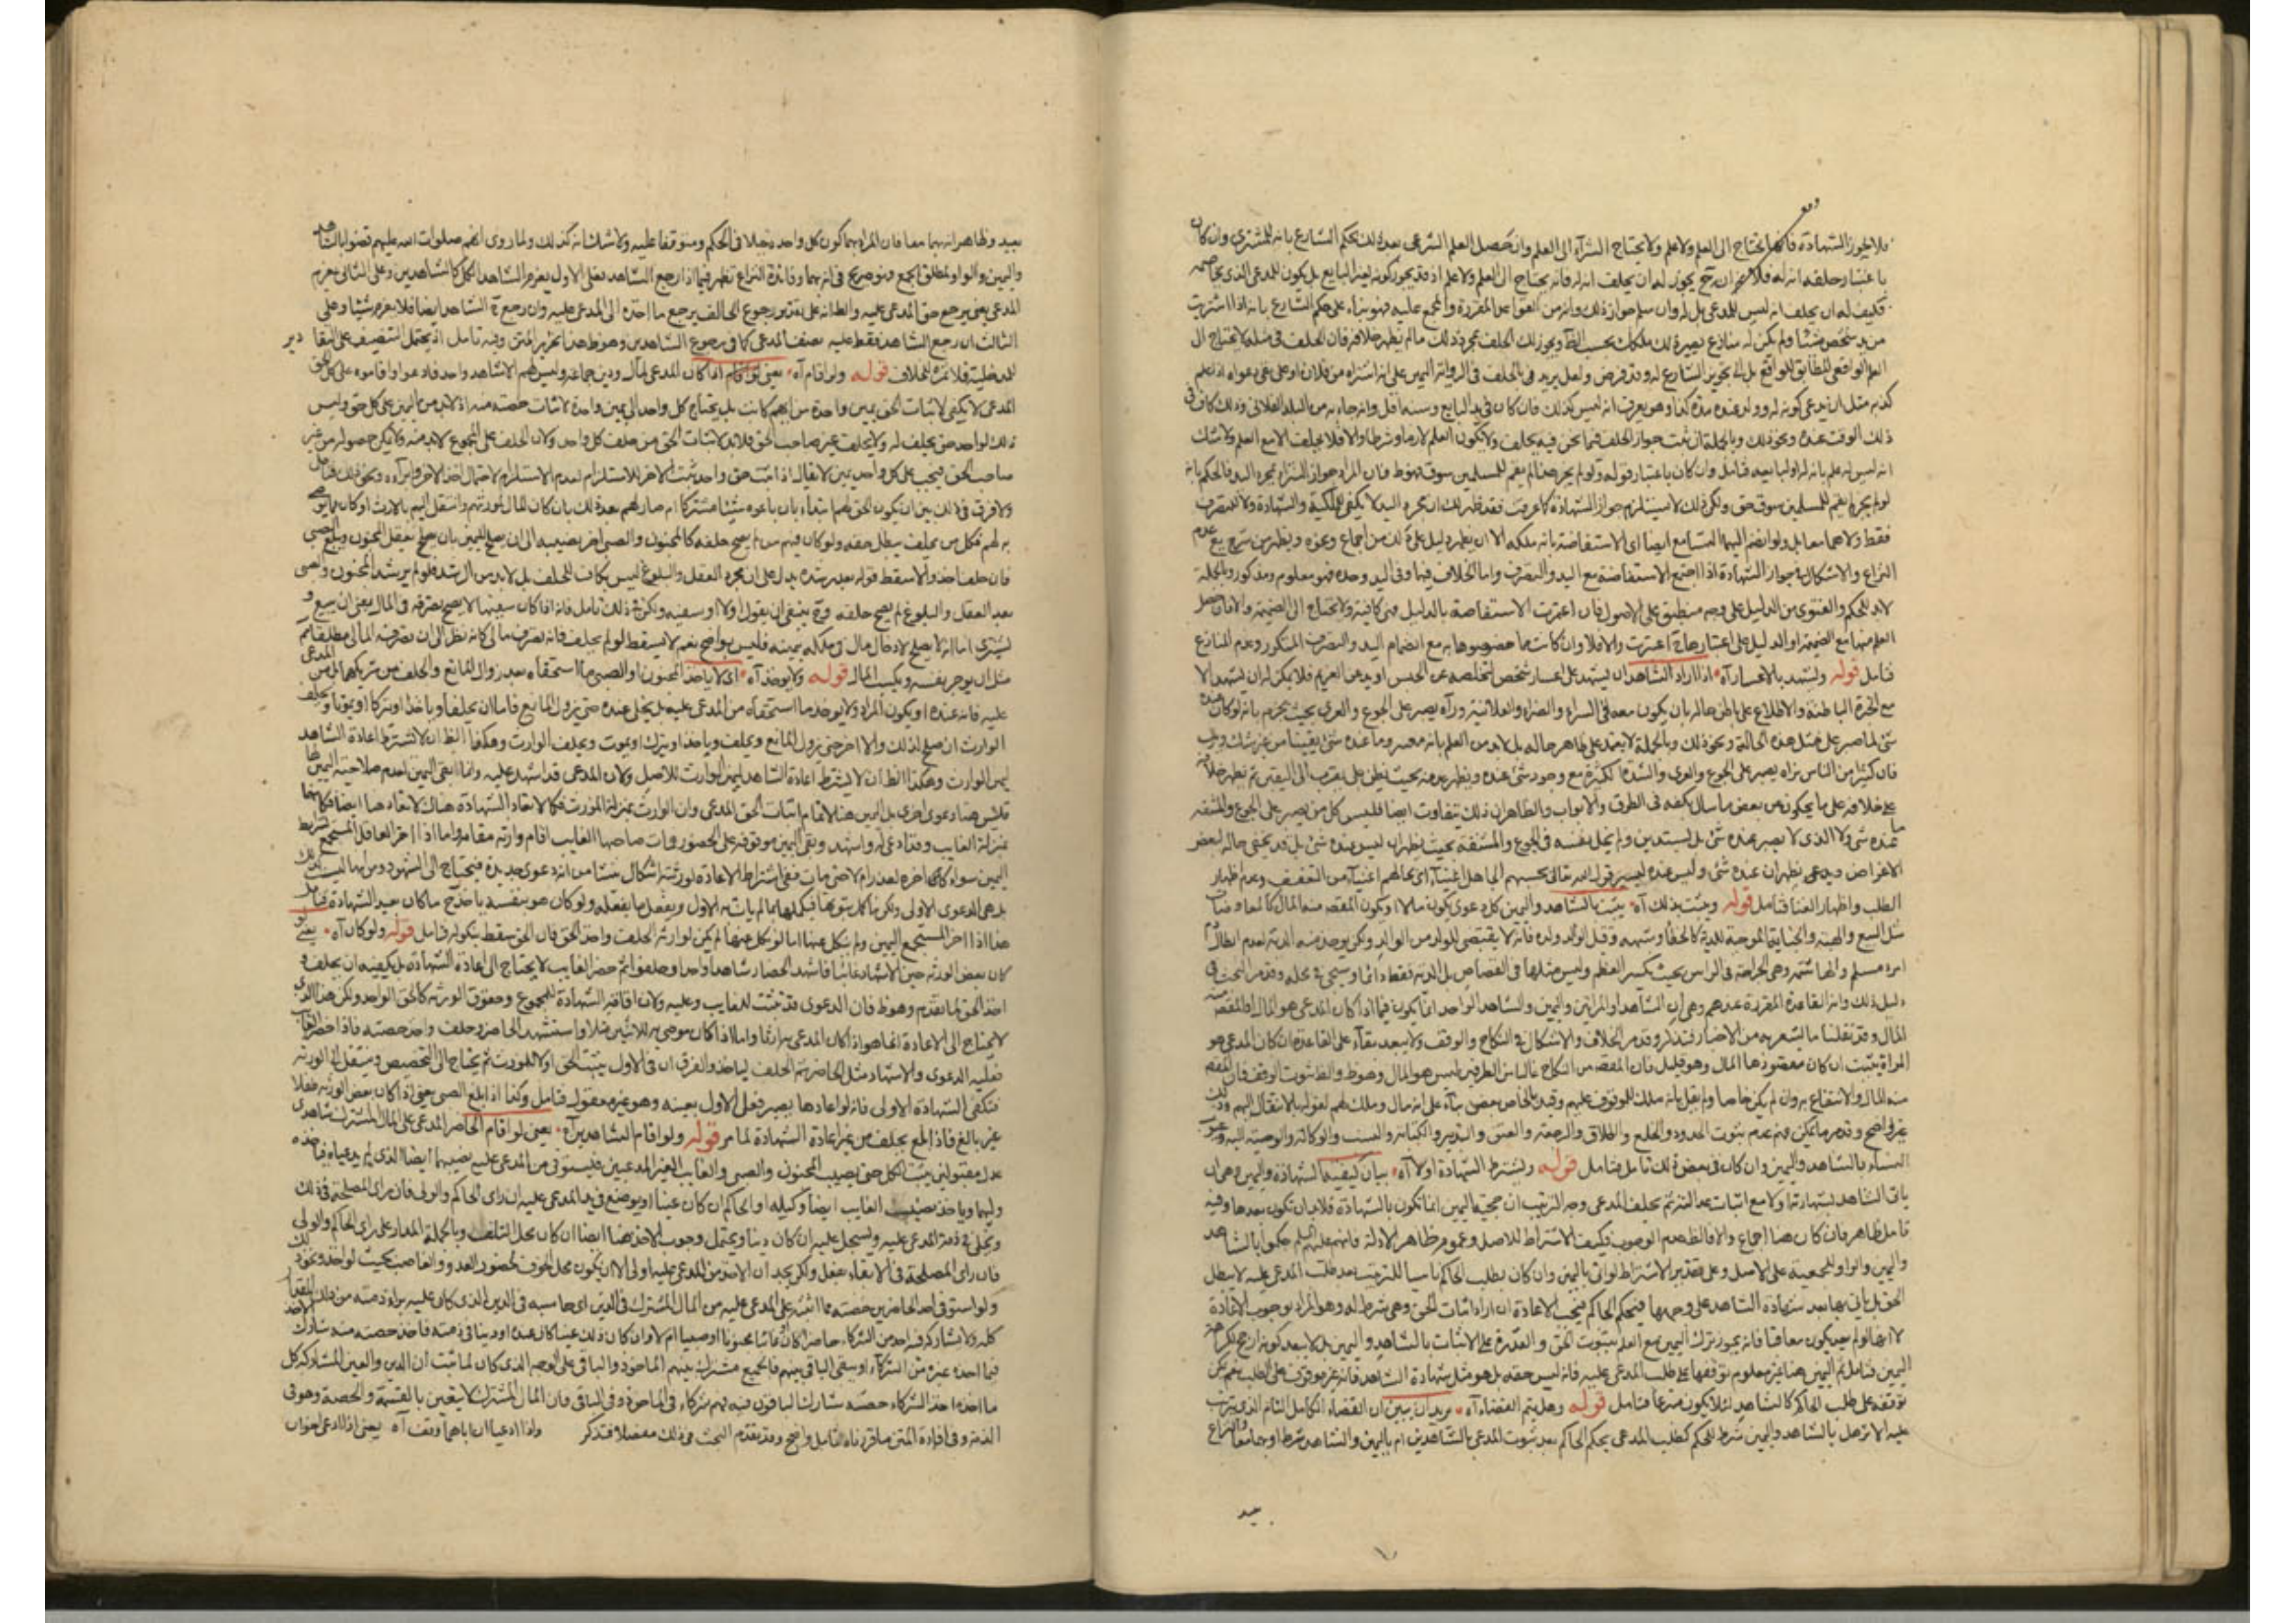 فلا يجوز الشهادة فانها تحتاج الى العلم ولا علم ولا يحتاج الشراء الى العلم وان حصل العلم الشرعى بعد ذلك بحكم الشارع بانه للمشترى وان كان
باعتبار حلفه انه له فلا يجوز له ان يحلف انه له فانه يحتاج الى العلم ولا علم اذ قد يجوز كونه لغير البايع بل يكون للمدعى الذى يخاصمه
فكيف له ان يحلف انه ليس للمدعى بل له وان سلم جواز ذلك وانه من القواعد المقررة والمجمع عليه فهو بناء على حكم الشارع بانه اذا اشتريت
من يد شخص شيئا ولم يكن له منازع يصير ذلك ملكك بحسب الظاهر ويجوز لك الحلف بمجرد ذلك ما لم يظهر خلافه فان الحلف فى مثله لا يحتاج الى
العلم الواقعى المطابق للواقع بل الى تجويز الشارع له وقد فرض ولعل يريد فى بالحلف فى الرواية اليمين على انه اشتراه من فلان او على نفى دعواه اذا علم
كذبه مثل ان يدعى كونه له وولد عنده مدة كذا وهو يعرف انه ليس كذلك فان كان فى يد البايع وسنه اقل وانه جاء به من البلد الفلانى وذلك كان فى
ذلك الوقت عنده ونحو ذلك وبالجملة ان ثبت جواز الحلف فيما نحن فيه يحلف ولا يكون العلم لازما وشرطا والا فلا يحلف الا مع العلم ولا شك
انه ليس له علم بانه له او لبايعه فتامل وان كان باعتبار قوله ولو لم يجز هذا لم يقم للمسلمين سوق فهو ظ فان المراد جواز الشراء بمجرد اليد فالحكم بانه
لو لم يجز لم يقم للمسلمين سوق حق ولكن ذلك لا يستلزم جواز الشهادة كما عرفت فقد ظهر لك ان مجرد اليد لا يكفى للملكية والشهادة ولا التصرف
فقط ولا هما معا بل ولو انضم اليهما التسامع ايضا اى الاستفاضة بانه ملكه الا ان يظهر دليل على ذلك من اجماع وغيره ويظهر من شرح يع عدم
النزاع والاشكال فى جواز الشهادة اذا اجتمع الاستفاضة مع اليد والتصرف وانما الخلاف فيهما وفى اليد وحده فهو معلوم ومذكور وبالجملة
لابد للحكم والفتوى من الدليل على وجه منطبق على الاصول فان اعتبرت الاستفاضة بالدليل فهى كافية ولا تحتاج الى الضميمة والا فان حصل
العلم منها مع الضميمة او الدليل على اعتبارها ح اعتبرت والا فلا وان كانت مما خصوصها به مع انضمام اليد والتصرف المتكرر وعدم المنازع
فتامل قوله ويشهد بالاعسار آه اذا اراد الشاهد ان يشهد على اعسار شخص لتخلصه عن الحبس او يد عن الغريم فلا يمكن له ان يشهد الا
مع الخبرة الباطنة والاطلاع على باطن حاله بان يكون معه فى السراء والضراء والعلانية ورآه يصبر على الجوع والعرى بحيث يجزم بانه لو كان عنده
شئ لما صبر على مثل هذه الحالة ونحو ذلك وبالجملة لا يعتمد على ظاهر حاله بل لابد من العلم بانه معسر وما عنده شئ يقينا من غير شك وريب
فان كثيرا من الناس نراه يصبر على الجوع والعرى والشدة الكثيرة مع وجود شئ عنده ويظهر عدمه بحيث يظن على يقرب الى اليقين ثم يظهر خلافه
على خلافه على ما يحكون عن بعض ما سال بكفه فى الطرق والابواب والظاهر ان ذلك يتفاوت ايضا فليس كل من يصبر على الجوع والمشقه
عنده شئ ولا الذى لا يصبر عنده شئ بل يستدين ولم يخل نفسه فى الجوع والمشقة بحيث يظهر انه ليس عنده شئ بل قد يخفى حاله لبعض
الاغراض ويدعى يظهر ان عنده شئ وليس عنده لقوله تعالى يحسبهم الجاهل اغنياء اى بحالهم اغنياء من التعفف وعدم اظهار
الطلب واظهار الغنا فتامل قوله ويثبت بذلك آه يثبت بالشاهد واليمين كل دعوى يكون مالا او يكون المقصد منه المال كالمعاوضات
مثل البيع والهبة والجناية الموجبة للدية كالخطأ وشبهه وقتل الوالد ولده فانه لا يقتضى للولد من الوالد ولكن يوخذ منه الدية لعدم ابطال دم
امرء مسلم والهاشمة وهى الجراحة فى الراس بحيث يكسر العظم وليس مثلها فى القصاص بل الدية فقط دائما وسيجى فى محله وقد مر البحث فى
دليل ذلك وانه القاعدة المقررة عندهم وهى ان الشاهد والمراتين واليمين والشاهد الواحد انما يكون فيما اذا كان المدعى هو المال او المقصد منه
المال وقد نقلنا ما يشعر به من الاخبار فتذكر وقد مر الخلاف والاشكال فى النكاح والوقف ولا يبعد بقاء على القاعدة ان كان المدعى هو
المراة يثبت ان كان مقصودها المال وهو قليل فان المقصد من النكاح غالبا من الطرفين ليس هو المال وهو ظ والظ ثبوت الوقف فان المقصد
منه المال والانتفاع به وان لم يكن خاصا ولم يقل بانه ملك للموقوف عليهم وقيد بالخاص بعض بناء على انه مال وملك لهم لقوله بالانتقال اليهم وذلك
غير واضح وقد مر ما يمكن فهم عدم ثبوت الحدود والخلع والطلاق والرجعة والعتق والتدبير والكتابة والنسب والوكالة والوصية اليه وعيوب
النساء بالشاهد واليمين وان كان فى بعض ذلك تامل فتامل قوله ويشترط الشهادة اولا آه بيان كيفية الشهادة واليمين وهى ان
ياتى الشاهد بشهادته اولا مع اثبات عدالته ثم يحلف المدعى وجه الترتيب ان حجية اليمين انما تكون بالشهادة فلابد ان تكون بعدها وفيه
تامل ظاهر فان كان هنا اجماع والا فالظ عدم الوجوب وكيف الاشتراط للاصل وعموم ظاهر الادلة فانهم عليهم السلم حكموا بالشاهد
واليمين والواو للجمعية على الاصل وعلى تقدير الاشتراط لو اتى باليمين وان كان بطلب الحاكم ناسيا للترتيب بعد طلب المدعى عليه لا يبطل
الحق بل ياتى بها بعد شهادة الشاهد على وجهها فيحكم الحاكم فيجب الاعادة ان اراد اثبات الحق وهى شرط له وهو المراد بوجوب الاعادة
لا انه لو لم يعد يكون معاقبا فانه يجوز ترك اليمين مع العلم بثبوت الحق والقدرة على الاثبات بالشاهد واليمين بل لا يبعد كونه ارجح لكن هذه
اليمين فتامل ثم اليمين هنا غير معلوم توقفها على طلب المدعى عليه فانه ليس حقه بل هو مثل شهادة الشاهد فانه غير موقوف على الطلب نعم يمكن
توقفه على طلب الحاكم كالشاهد لئلا يكون متبرعا فتامل قوله وهل يتم القضاء آه يريد ان يبين ان القضاء الكامل التام الذى يترتب
عليه الاثر هل بالشاهد واليمين شرط للحكم كطلب المدعى بحكم الحاكم بعد ثبوت المدعى بالشاهدين ام باليمين والشاهد شرط او بهما معا والنزاع
بعيد
بعيد وظاهر انه بهما معا فان المراد بهما كون كل واحد دخلا فى الحكم ومتوقفا عليه ولا شك انه كذلك ولما روى انهم صلوات الله عليهم قضوا بالشاهد
واليمين والواو لمطلق الجمع وهو صريح فى انه بهما وفائدة النزاع تظهر فيما اذا رجع الشاهد فعلى الاول يغرم الشاهد الكل كالشاهدين وعلى الثانى يغرم
المدعى يعنى يرجع حق المدعى عليه والظ انه على تقدير رجوع الحالف يرجع ما اخذه الى المدعى عليه وان رجع ح الشاهد ايضا فلا يغرم شيئا وعلى
الثالث ان رجع الشاهد فقط عليه نصف المدعى كما فى رجوع الشاهدين وهو ظ هذا تحرير المتن وفيه تامل اذ يحتمل التنصيف على البقا
للمدخلية فلا ثمرة للخلاف قوله ولو اقام آه يعنى لو اقام اذا كان المدعى لمال ودين جماعة وليس لهم الا شاهد واحد فادعوا واقاموه على كل الحق
المدعى لا يكفى لاثبات الحق يمين واحدة من ايهم كانت بل يحتاج كل واحد الى يمين واحدة لاثبات حصته منه اذ لابد من اليمين على كل حق وليس
ذلك لواحد حتى يحلف له ولا يحلف غير صاحب الحق فلابد لاثبات الحق من حلف كل واحد ولان الحلف على المجموع لابد منه ولا يمكن حصوله من غير
صاحب الحق فيجب على كل واحد يمين لا يقال اذا ثبت حق واحد يثبت الاخر للاستلزام لعدم الاستلزام لاحتمال اخذ الاخر وابرائه ونحو ذلك فتامل
ولا فرق فى ذلك بين ان يكون الحق لهم ابتداء بان باعوه شيئا مشتركا ام صار لهم بعد ذلك بان كان المال لمورثهم وانتقل اليهم بالارث او كان مما يوصى
به لهم فكل من يحلف يبطل حقه ولو كان فيهم من لم يصح حلفه كالمجنون والصبى اخر نصيبه الى ان يصلح لليمين بان يصلح بعقل المجنون وبلغ الصبى
فان حلف اخذ والا سقط قوله بعد رشده يدل على ان مجرد العقل والبلوغ ليس بكاف للحلف بل لابد من الرشد فلو لم يرشد المجنون والصبى
بعد العقل والبلوغ لم يصح حلفه وح ينبغى ان يقول اولا او سفيه ولكن فى ذلك تامل فانه اذا كان سفيها لا يصح تصرفه فى المال يعنى ان يبيع و
يشترى اما انه لا يصلح لادخال مال فى ملكه بيمينه فليس بواضح نعم لا يسقط لو لم يحلف فانه تصرف مالى كانه نظر الى ان تصرفه المالى مطلقا ثم
مثل ان يوجر نفسه ويكسب المال قوله ولا يوخذ آه اى لا ياخذ المجنون او الصبى ما استحقاه بعد زوال المانع والحلف من شريكهما لمن المدعى
عليه فانه عنده او يكون المراد ولا يوخذ ما استحقاه من المدعى عليه بل يخلى عنده حتى يزول المانع فاما ان يحلفا وياخذا او يتركا او يموتا ويحلف
الوارث ان صلح لذلك والا اخر حتى يزول المانع ويحلف وياخذ او يترك او يموت ويحلف الوارث وهكذا الظ ان لا يشترط اعادة الشاهد
ليمين الوارث وهكذا الظ ان لا يشترط اعادة الشاهد ليمين الوارث للاصل ولان المدعى قد اشهد عليه وانما ابقى اليمين لعدم صلاحية اليمين لها
فليس هنا دعوى اخرى بل اليمين هنا لاتمام اثبات الحق المدعى وان الوارث بمنزلة المورث فكما لا تعاد الشهادة هناك لا تعاد هنا ايضا فكانها
بمنزلة الغايب وقد ادعى له واشهد وبقى اليمين موقوفة على الحضور ومات صاحبها الغايب اقام وارثه مقامه واما اذا اخر العاقل المستجمع لشرايط
اليمين سواء كان اخره لعذر ام لا حتى مات ففى اشتراط الاعادة لورثته اشكال منشا من انه دعوى جديدة فيحتاج الى الشهود ومن انها ليست كذلك
بل هى الدعوى الاولى ولكن ما كمل ثبوتها فيكملها بما لم يات به الاول ويفعل ما يفعله ولو كان هو بنفسه ياخذ ح ما كان يعيد الشهادة فتامل
هذا اذا اخر المستجمع اليمين ولم ينكل عنها اما لو نكل عنها لم يكن لوارثه الحلف واخذ الحق فان الحق سقط بنكوله فتامل قوله ولو كان آه يعنى لو
كان بعض الورثة حين الاشهاد غائبا فاشهد الحضار شاهدا واحدا وحلفوا ثم حضر الغايب لا يحتاج الى اعادة الشهادة بل يكفيه ان يحلف و
اخذ الحق لما تقدم وهو ظ فان الدعوى قد ثبتت للغايب وعليه ولان اقامة الشهادة للمجموع وحقوق الورثة كالحق الواحد ولكن هذا الذى
لا يحتاج الى الاعادة انما هو اذا كان المدعى ميراثا واما اذا كان موصى به للاثنين مثلا واستشهد الحاضر وحلف واخذ حصته فاذا حضر الغايب
فعليه الدعوى والاشهاد مثل الحاضر ثم الحلف لياخذ والفرق ان فى الاول يثبت الحق اولا للمورث ثم يحتاج الى التخصيص وينتقل الى الورثة
فتكفى الشهادة الاولى فانه لو اعادها يصير فعل الاول بعينه وهو غير معقول فتامل وكذا اذا بلغ الصبى يعنى اذا كان بعض الورثة طفلا
غير بالغ فاذا بلغ يحلف من غير اعادة الشهادة لما مر قوله ولو اقام الشاهدين آه يعنى لو اقام الحاضر المدعى على المال المشترك شاهدى
عدل مقبولين يثبت الكل حتى يصيب المجنون والصبى والغايب الغير المدعيين فيستوفى من المدعى عليه نصيبهما ايضا الذى لم يدعياه فياخذه
وليهما وياخذ نصيب الغايب ايضا وكيله او الحاكم ان كان عينا او يوضع فى يد المدعى عليه ان راى الحاكم والولى فان راى المصلحة فى ذلك
ويخلى فى ذمة المدعى عليه ويسجل عليه ان كان دينا ويحتمل وجوب الاخذ هنا ايضا ان كان محل التلف وبالجملة المدار على راى الحاكم والولى
فان راى المصلحة فى الابقاء يفعل ولكن بعيد ان الاخذ من المدعى عليه اولى الا ان يكون محل الخوف لحضور العدو والغاصب بحيث لو اخذ ونحو ذلك
ولو استوفى احد الحاضرين حصته مما اثبته على المدعى عليه من المال المشترك فى الدين اى حاسبه فى الدين الذى كان عليه براءة ذمته من ذلك المقدار
كله ولا يشاركه فيه احد من الشركاء حاضرا كان او غائبا مجنونا او صبيا ام لا وان كان ذلك عينا كان عنده او دينا فى ذمته فاخذ حصته منه شارك
فيما اخذه غيره من الشركاء وبقى الباقى بينهم فالجميع مشترك بينهم الماخوذ والباقى على الوجه الذى كان لما ثبت ان الدين والعين المشترك كل
ما اخذه احد الشركاء حصته شارك الباقون فيه فهم شركاء فى الماخوذ وفى الباقى فان المال المشترك لا يتعين بالقسمة والحصة وهو فى
الذمة وفى افادة المتن ما قررناه تامل واضح وقد تقدم البحث فى ذلك مفصلا فتذكر واذا ادعيا ان اباهما وقف آه يعنى اذا ادعى اخوان